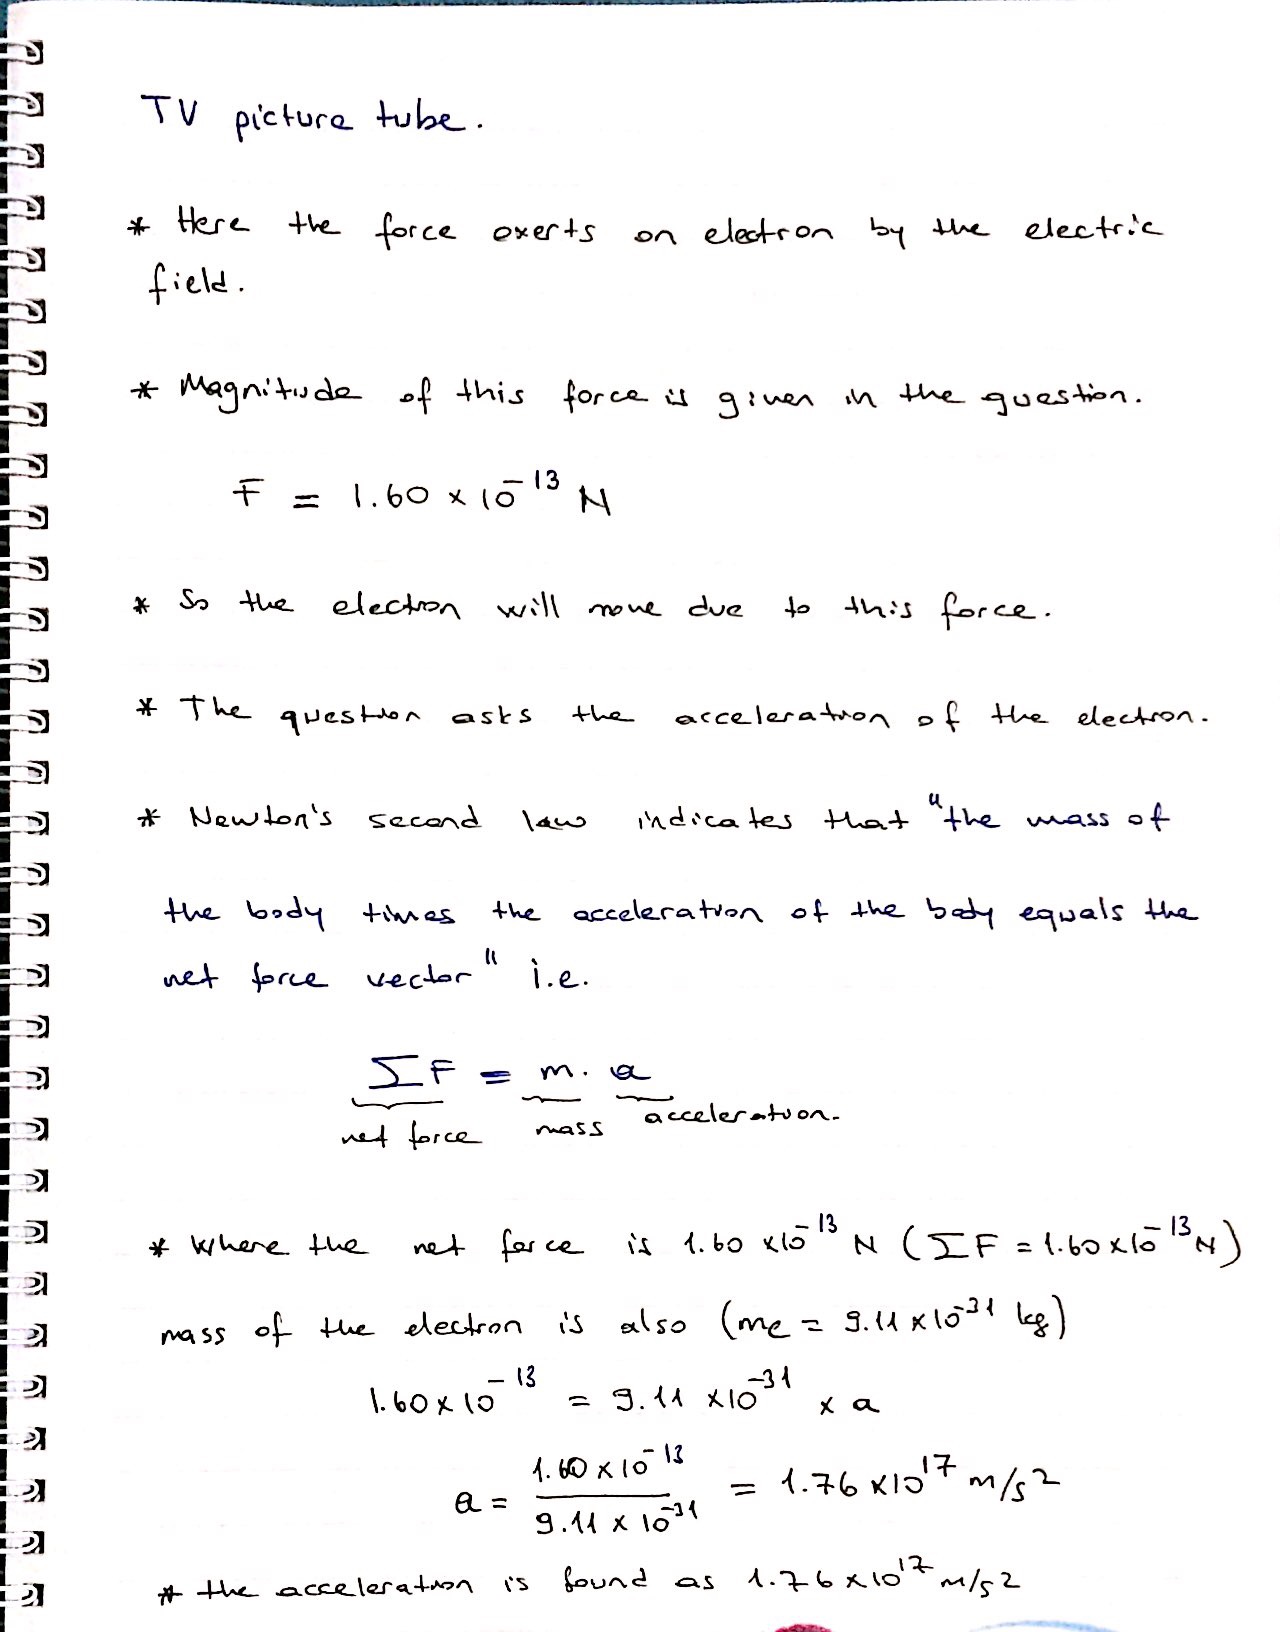 TV picture tube.
* Here the force exerts on electron by the electric
field.
* Magnitude of this force is given in the question.
F = 1.60 x 10^-13 N
* So the electron will move due to this force.
* The question asks the acceleration of the electron.
* Newton's second law indicates that "the mass of
the body times the acceleration of the body equals the
net force vector" i.e.
ΣF = m. a
net force mass acceleration.
* Where the net force is 1.60 x10^-13 N (ΣF = 1.60x10^-13 N)
mass of the electron is also (me = 9.11 x10^-31 kg)
1.60x10^-13 = 9.11 x10^-31 x a
a = 1.60 x10^-13 / 9.11 x 10^-31 = 1.76 x10^17 m/s2
* the acceleration is found as 1.76x10^17 m/s2